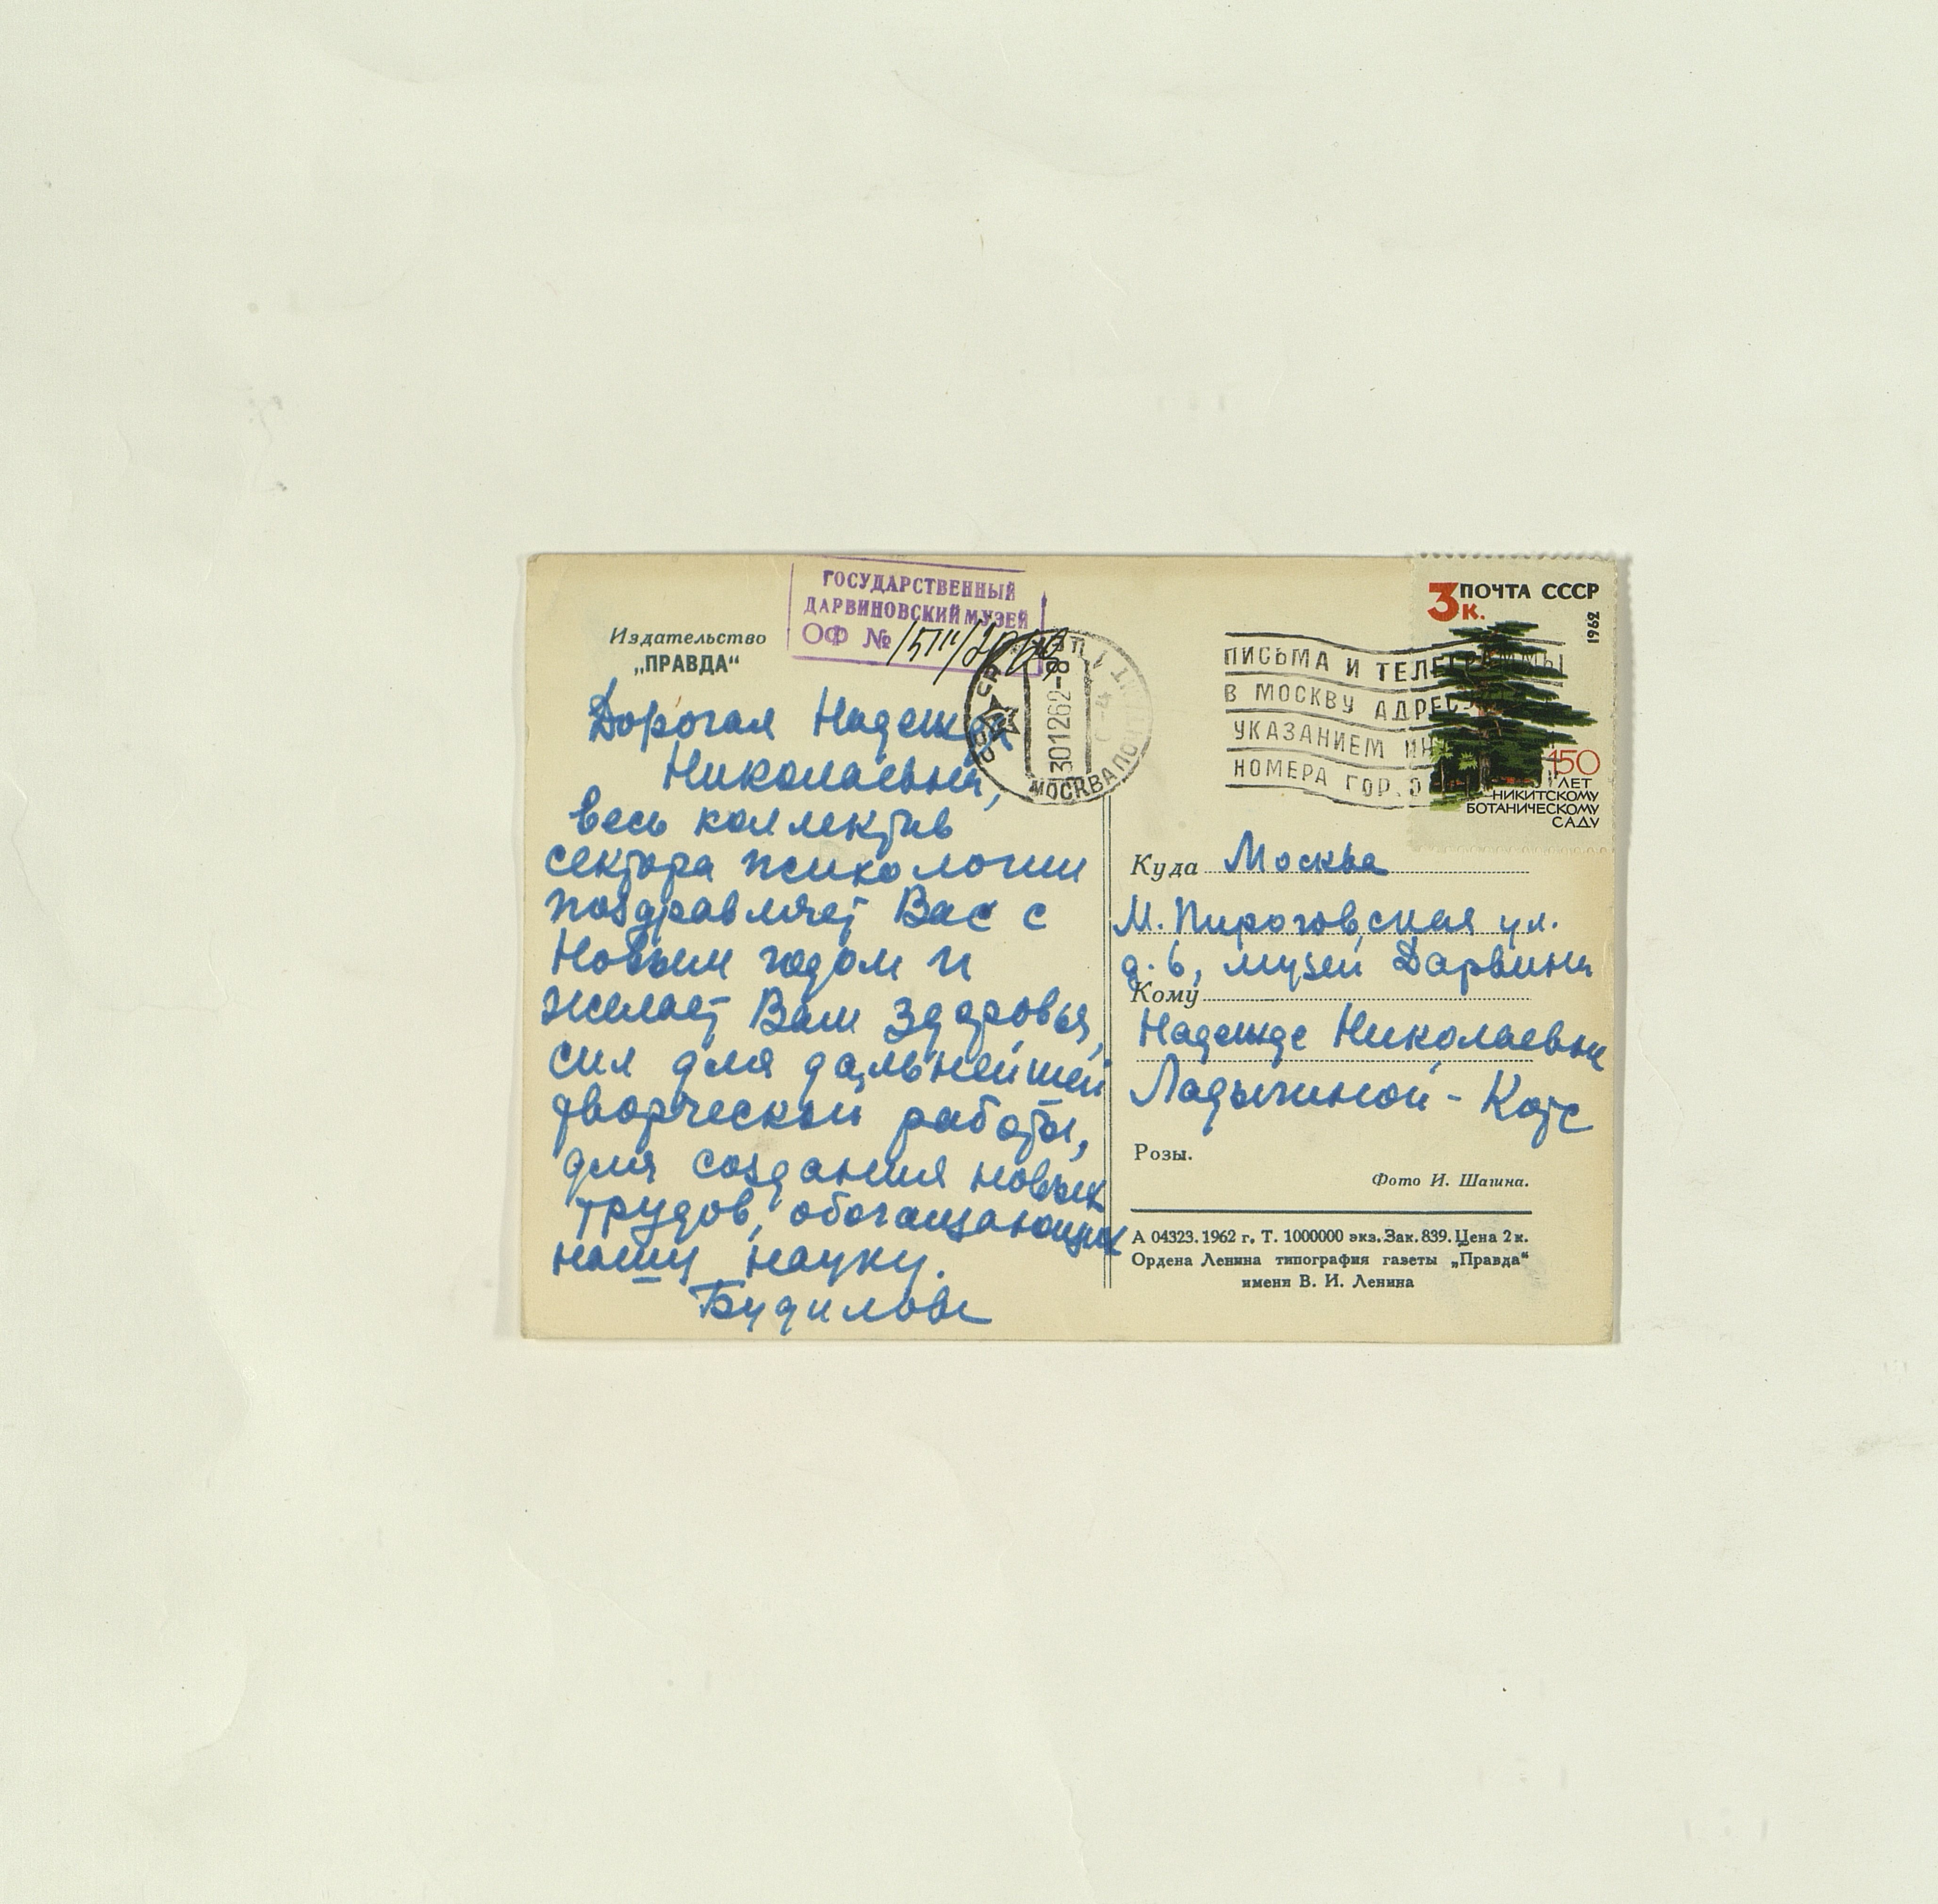 Издательство
„ПРАВДА“
ГОСУДАРСТВЕННЫЙ
ДАРВИНОВСКИЙ МУЗЕЙ
ОФ №
Дорогая Надежда
Николаевна,
весь коллектив
сектора психологии
поздравляет Вас с
Новым годом и
желает Вам здоровья,
сил для дальнейшей
творческой работы,
для создания новых
трудов, обогащающих
нашу науку.
Будилова
СССР
МОСКВА ПОЧТАМТ
301262-8
ПИСЬМА И ТЕЛЕГРАММЫ
В МОСКВУ АДРЕС
УКАЗАНИЕМ ИН
НОМЕРА ГОР. О
3 к. ПОЧТА СССР
1962
150
ЛЕТ
НИКИТСКОМУ
БОТАНИЧЕСКОМУ
САДУ
Куда Москва
М. Пироговская ул.
д. 6, музей Дарвина
Кому
Надежде Николаевне
Ладыгиной - Котс
Розы.
Фото И. Шагина.
А 04323. 1962 г. Т. 1000000 экз. Зак. 839. Цена 2 к.
Ордена Ленина типография газеты „Правда“
имени В. И. Ленина